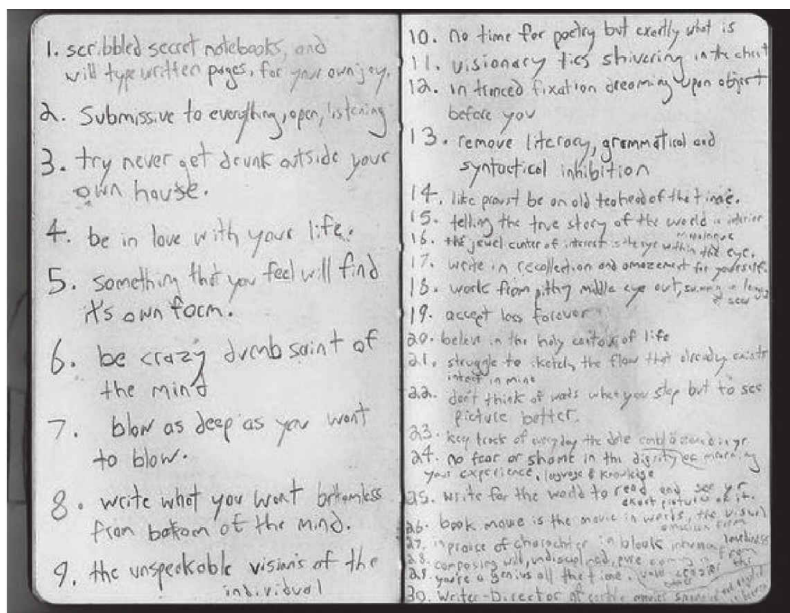 1. scribbled secret notebooks, and
will type written pages, for your own joy.
2. Submissive to everything, open, listening
3. try never get drunk outside your
own house.
4. be in love with your life.
5. something that you feel will find
it's own form.
6. be crazy dumb saint of
the mind
7. blow as deep as you want
to blow.
8. write what you want bottomless
from bottom of the mind.
9. the unspeakable visions of the
individual
10. no time for poetry but exactly what is
11. visionary tics shivering in the chest
12. in tranced fixation dreaming upon object
before you
13. remove literary, grammatical and
syntactical inhibition
14. like proust be an old teahead of the time.
15. telling the true story of the world in interior
monologue
16. the jewel center of interest is the eye within the eye.
17. write in recollection and amazement for yourself.
18. work from pithy middle eye out, swimming in language
sea
19. accept loss forever
20. believe in the holy contour of life
21. struggle to sketch the flow that already exists
intact in mind
22. don't think of words when you stop but to see
picture better.
23. keep track of everyday the date in yr
24. no fear or shame in the dignity of
your experience, language & knowledge
25. write for the world to read and see yr
exact pictures of it.
26. book movie is the movie in words, the visual
american form
27. in praise of character in bleak inhuman loneliness
28. composing wild, undisciplined, pure coming in from
29. you're a genius all the time.
30. writer-Director of earthly movies